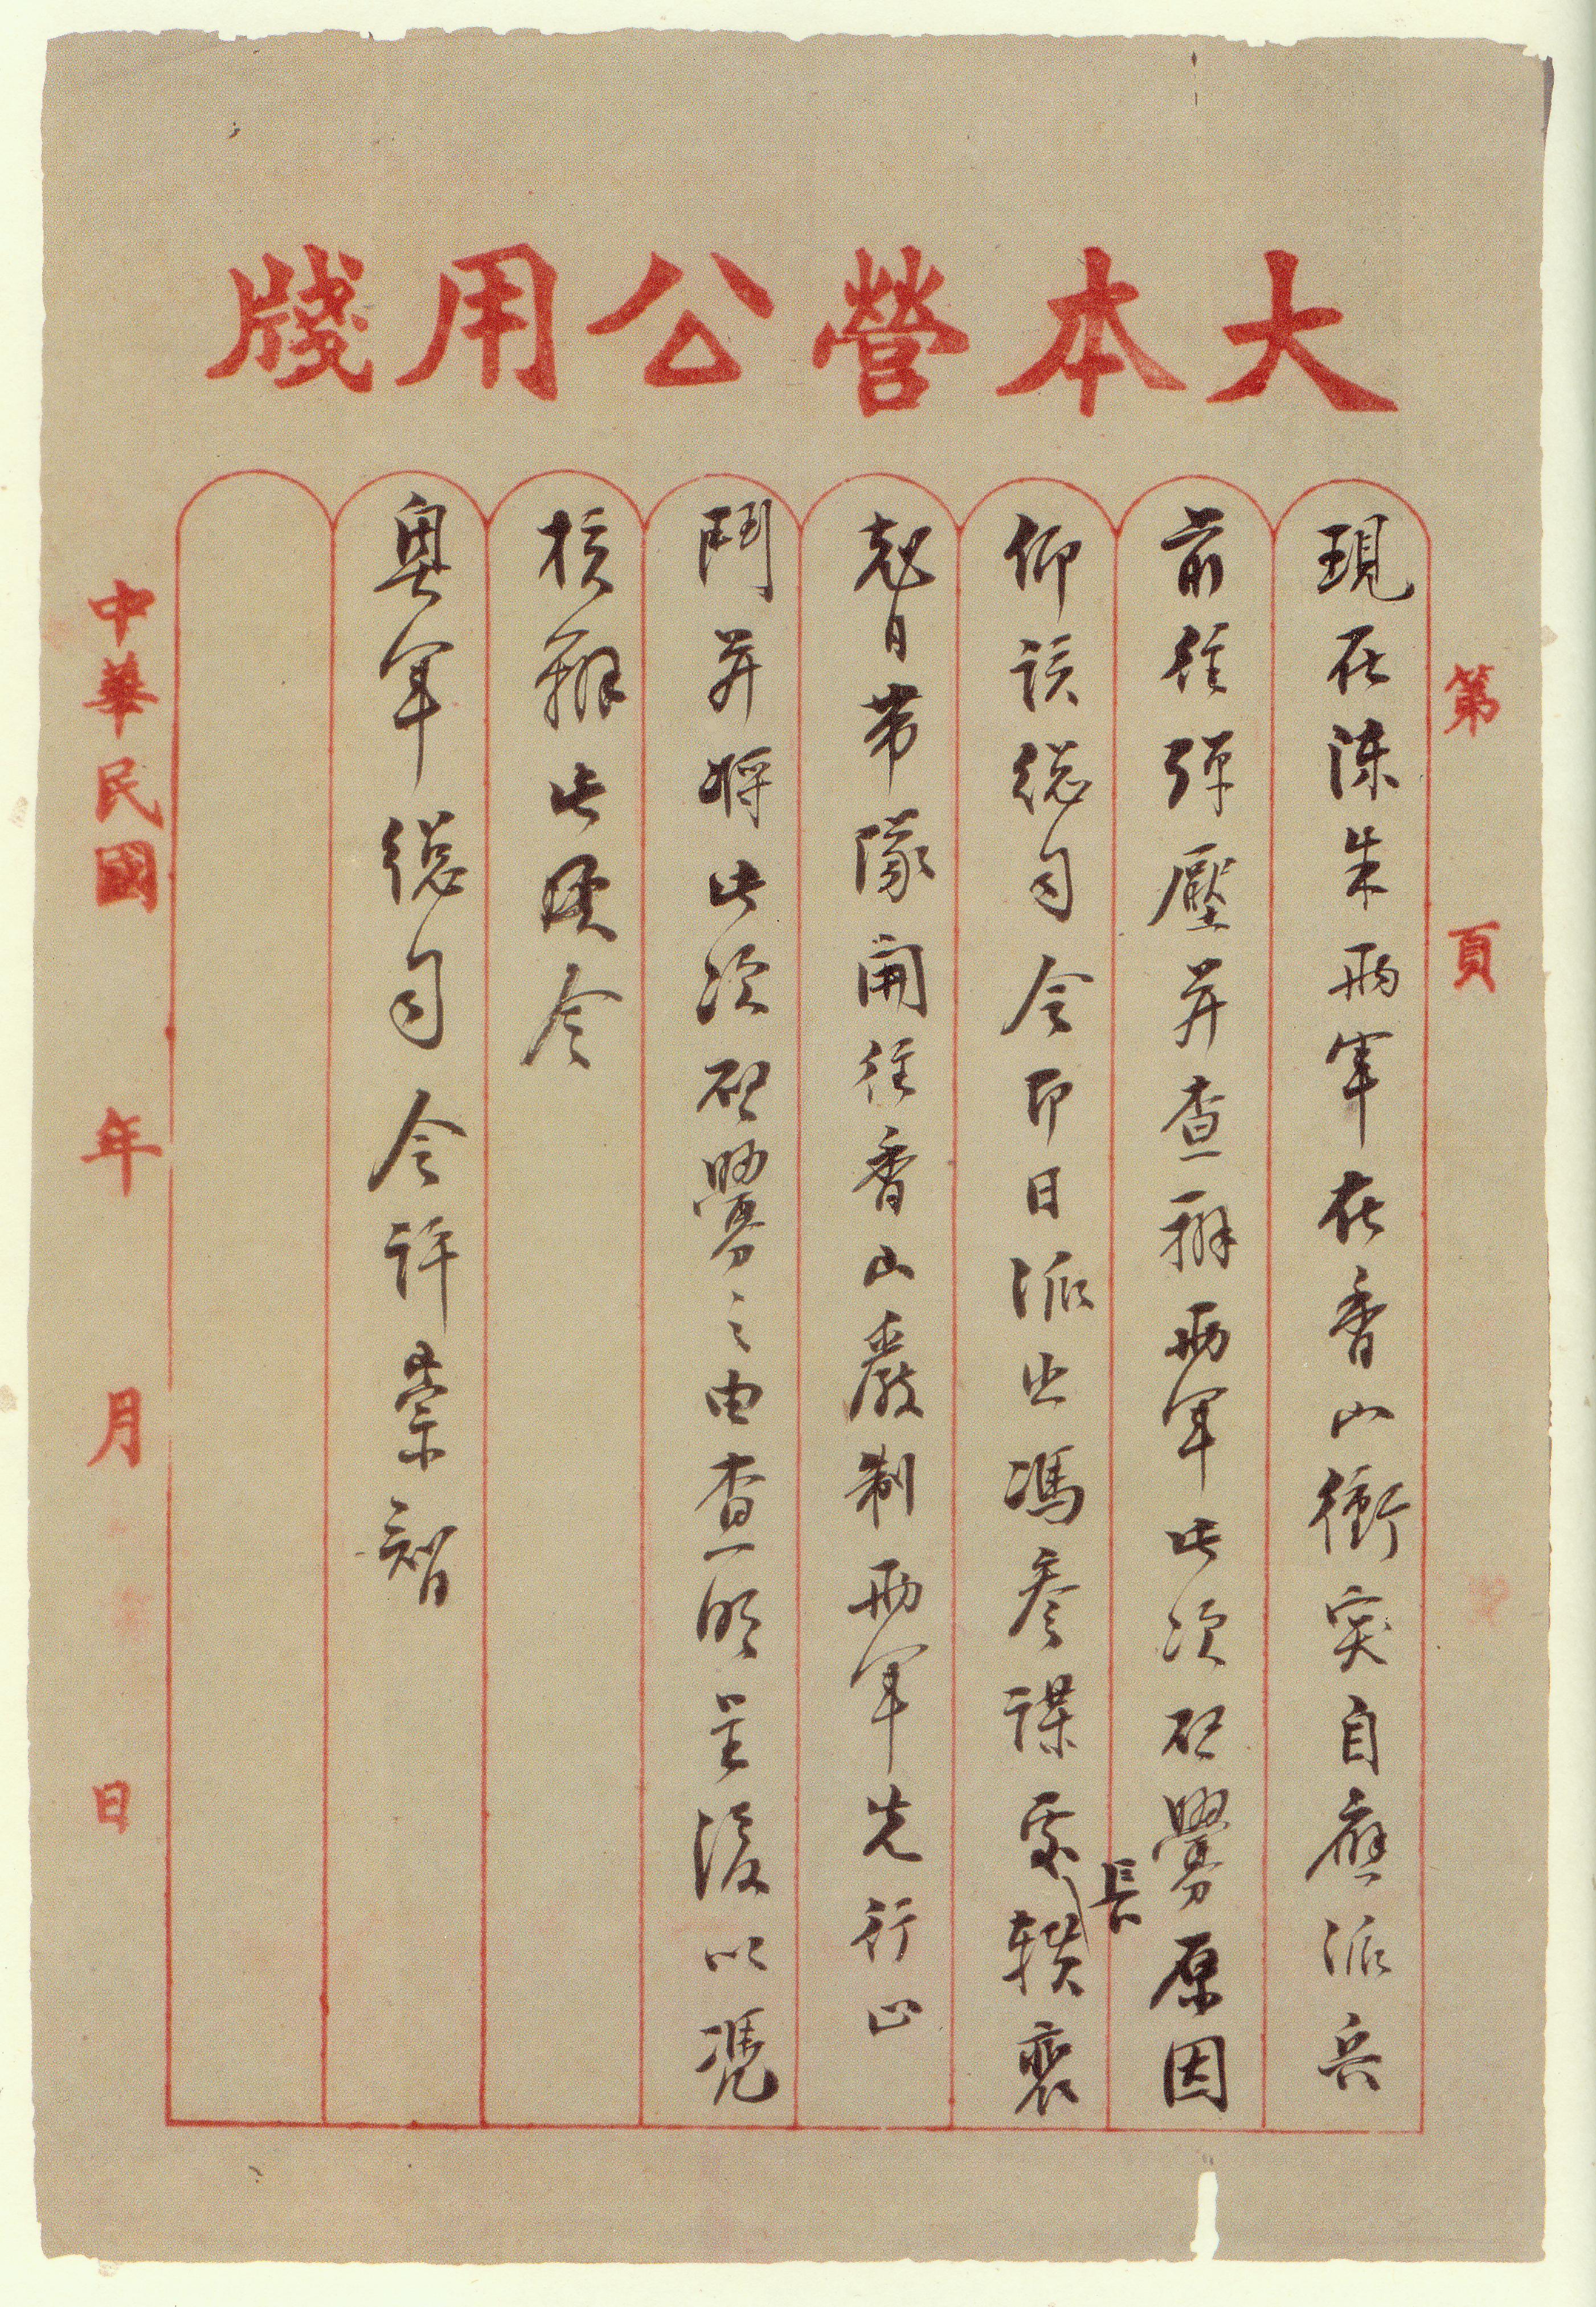 大本營公用牋
第 頁
現在陳朱兩軍在香山衝突自應派兵
前往彈壓并查辦兩軍此次啟釁原因
仰該總司令即日派出馮參謀處長軼裴
剋日帶隊開往香山嚴制兩軍先行止
鬥并將此次啟釁之由查明呈復以憑
核辦此令
粵軍總司令許崇智
中華民國 年 月 日